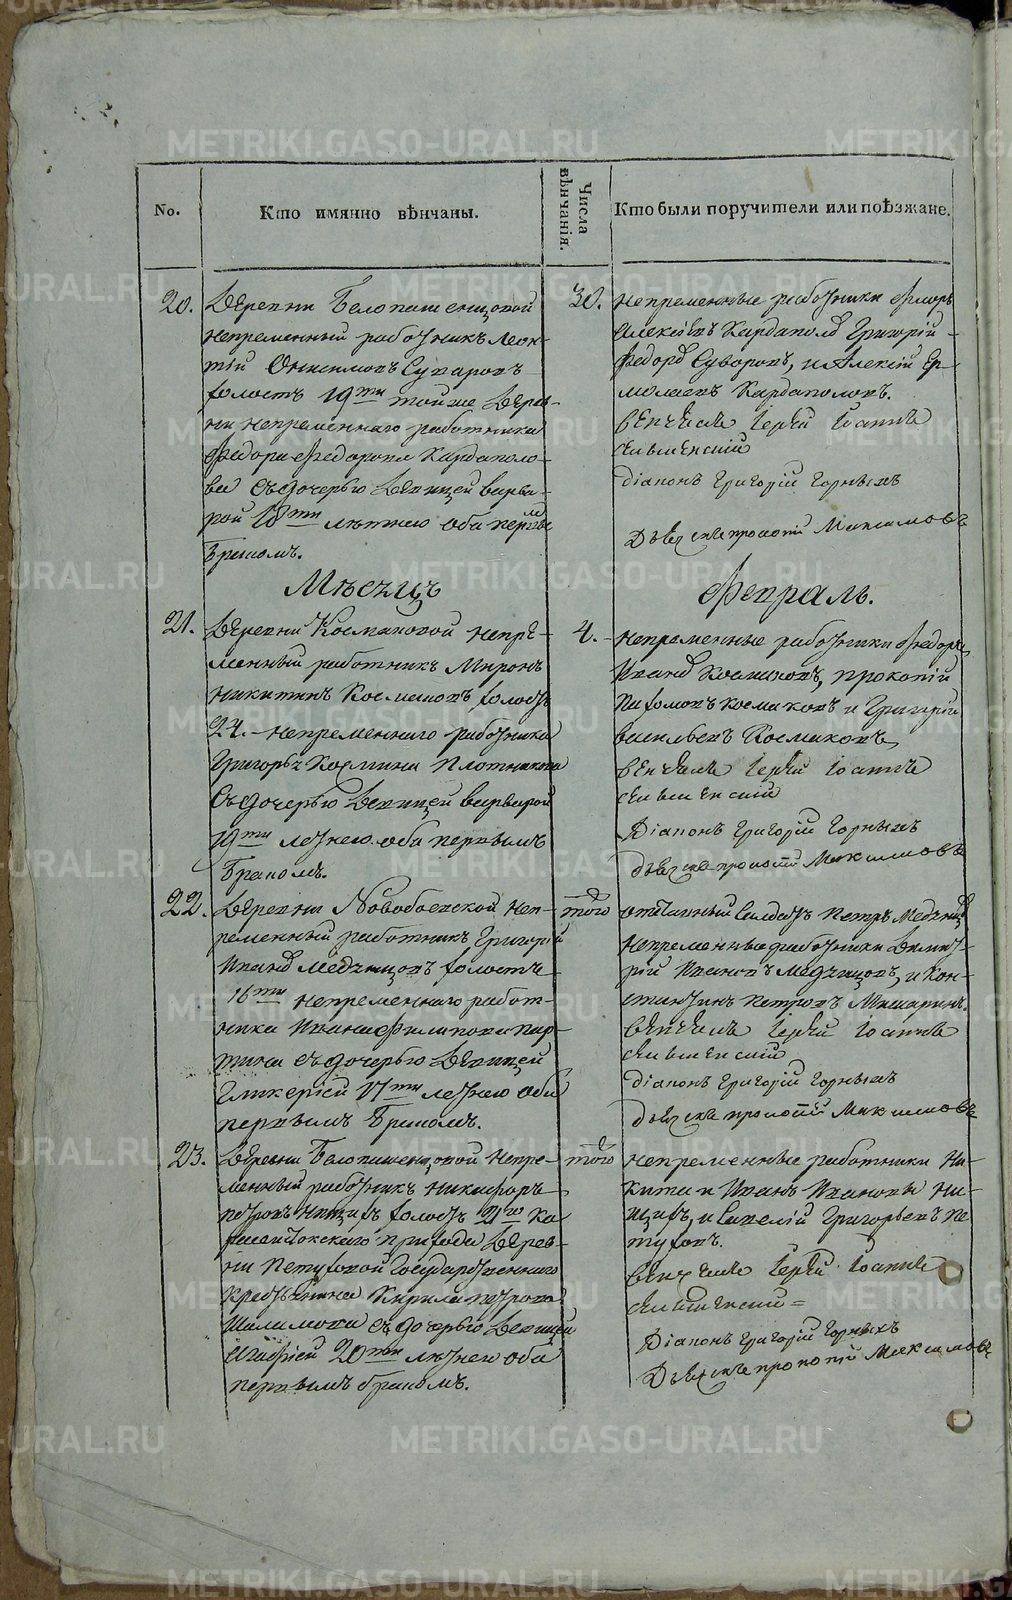 No.
Кто имянно вѣнчаны.
Числа вѣнчанія.
Кто были поручители или поѣзжане.
20.
Деревни Белопашенцовой
непременный работникъ Леон-
тій Онисимовъ Сунаровъ
холостъ 19ти тойже дерев-
ни непременнаго работника
Федора Федорова Кардапло-
ва съ дочерью девицей Варва-
рой 18ти летнею оба первымъ
бракомъ.
30.
Непременные работники Флоръ
Алексѣевъ Кардаполъ Григорій
Федоровъ Суворовъ, и Алексій Ер-
молаевъ Кардаполовъ.
венчалъ Іерей Іоаннъ
діаконъ Григорій Горныхъ
Дьячекъ Прокопій Максимовъ
Мѣсецъ
Февраль.
21.
Деревни Космаковой непре-
менный работникъ Миронъ
Никитинъ Космаковъ холостъ
24. непременнаго работника
Григорья Космина Плотникова
съ дочерью девицей Варварой
19ти летнею оба первымъ
бракомъ.
4.
непременные работники Федоръ
Ивановъ Космаковъ, Прокопій
Пахомовъ Космаковъ и Григорій
Васильевъ Космаковъ
венчалъ Іерей Іоаннъ
Діаконъ Григорій Горныхъ
дьячекъ Прокопій Максимовъ
22.
Деревни Новобоевской неп-
ременный работникъ Григорій
Ивановъ Медянцовъ холостъ
16ти непременнаго работ-
ника Ивана Филипова
съ дочерью девицей
Гликеріей 17ти летнею оба
первымъ бракомъ.
того
отставный солдатъ Петръ Медянцовъ
непременные работники Димит-
рій Ивановъ Медянцовъ, и Кон-
стантинъ Петровъ Мишаринъ.
венчалъ Іерей Іоаннъ
діаконъ Григорій Горныхъ
дьячекъ Прокопій Максимовъ
23.
Деревни Белопашенцовой непре-
менный работникъ Никифоръ
Петровъ холостъ 21го Ка-
прихода дерев-
ни Петуховой Государственнаго
крестьянина Кирила Петрова
Шаламова съ дочерью девицей
Агафіей 20ти летнею оба
первымъ бракомъ.
того
непременные работники Ни-
кита и Иванъ Ивановы
и Савелій Григорьевъ Пе-
туховъ.
венчалъ Іерей Іоаннъ
Діаконъ Григорій Горныхъ
Дьячекъ Прокопій Максимовъ
METRIKI.GASO-URAL.RU